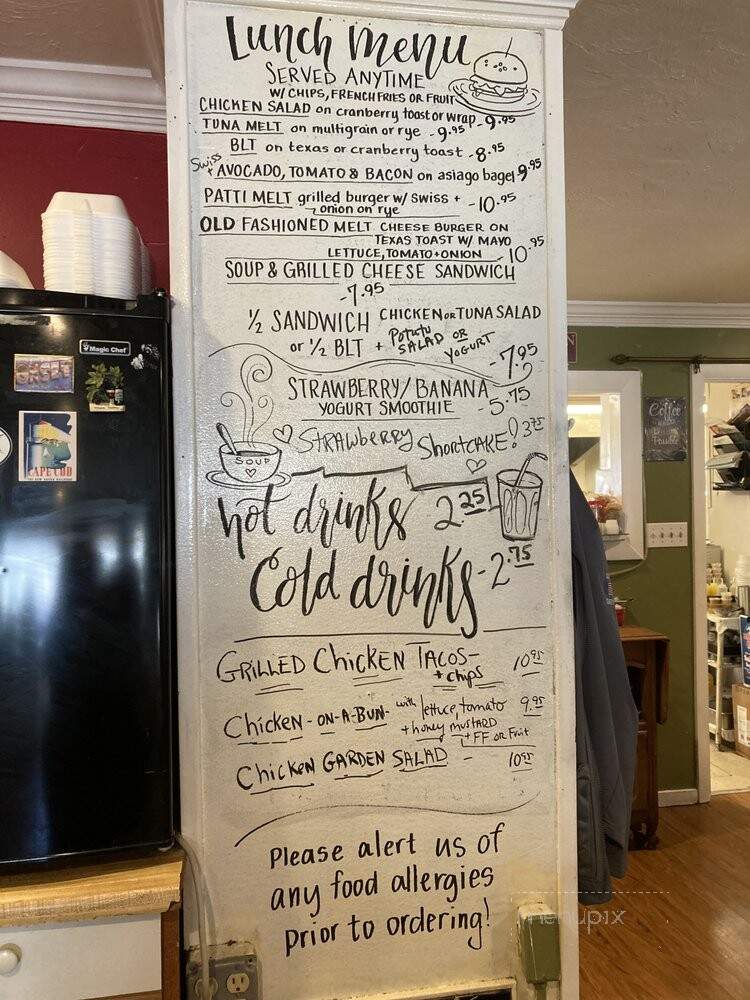 Lunch menu
SERVED ANYTIME
W/ CHIPS, FRENCH FRIES OR FRUIT
CHICKEN SALAD on cranberry toast or wrap - 9.95
TUNA MELT on multigrain or rye - 9.95
BLT on texas or cranberry toast - 8.95
Swiss + AVOCADO, TOMATO & BACON on asiago bagel 9.95
PATTI MELT grilled burger w/ swiss + - 10.95
onion on rye
OLD FASHIONED MELT CHEESE BURGER ON
TEXAS TOAST W/ MAYO
LETTUCE, TOMATO + ONION 10.95
SOUP & GRILLED CHEESE SANDWICH
- 7.95
1/2 SANDWICH CHICKEN OR TUNA SALAD
or 1/2 BLT + Potato SALAD OR YOGURT - 7.95
STRAWBERRY/BANANA
YOGURT SMOOTHIE - 5.75
STRAWBERRY SHORTCAKE! 3.75
SOUP
hot drinks 2.25
Cold drinks - 2.75
GRILLED CHICKEN TACOS -
+ chips 10.95
Chicken - ON - A - BUN - with lettuce, tomato 9.95
+ honey mustard
+ FF OR Fruit
Chicken GARDEN SALAD - 10.95
Please alert us of
any food allergies
prior to ordering!
Magic Chef
CAPE COD
Coffee
menupix